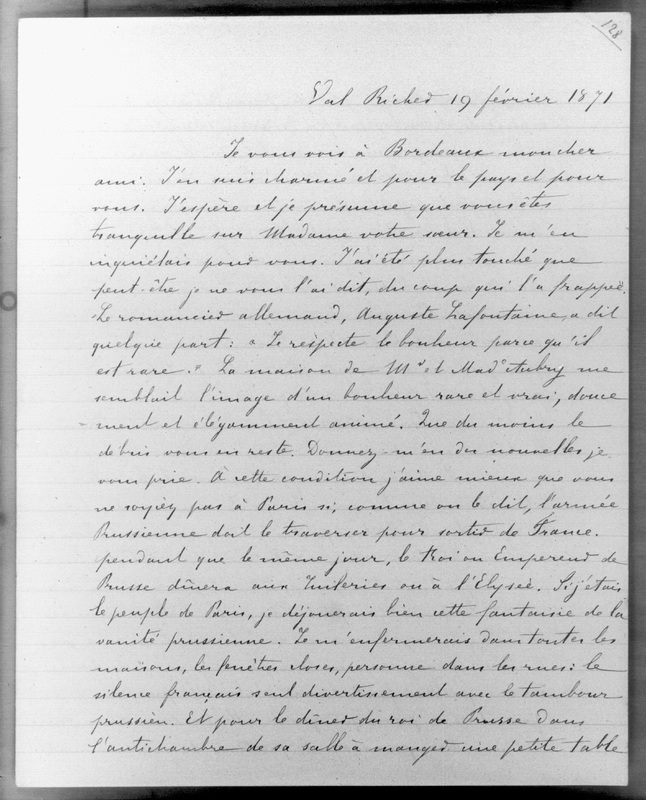 128
Val Richer 19 février 1871
Je vous vois à Bordeaux mon cher
ami. J'en suis charmé et pour le pays et pour
vous. J'espère et je présume que vous êtes
tranquille sur Madame votre sœur. Je m'en
inquiétais pour vous. J'ai été plus touché que
peut-être je ne vous l'ai dit, du coup qui l'a frappée.
Le romancier allemand, Auguste Lafontaine, a dit
quelque part : « Je respecte le bonheur parce qu'il
est rare. » La maison de Mr et Made Aubry me
semblait l'image d'un bonheur rare et vrai, douce
ment et élégamment animé. Que du moins le
débris vous en reste. Donnez-m'en des nouvelles je
vous prie. À cette condition j'aime mieux que vous
ne soyiez pas à Paris si, comme on le dit, l'armée
Prussienne doit le traverser pour sortir de France.
pendant que le même jour, le Roi ou Empereur de
Prusse dînera aux Tuileries ou à l'Elysée. Si j'étais
le peuple de Paris, je déjouerais bien cette fantaisie de la
vanité prussienne. Je m'enfermerais dans toutes les
maisons, les fenêtres closes, personne dans les rues : le
silence français seul divertissement avec le tambour
prussien. Et pour le dîner du roi de Prusse dans
l'antichambre de sa salle à manger une petite table